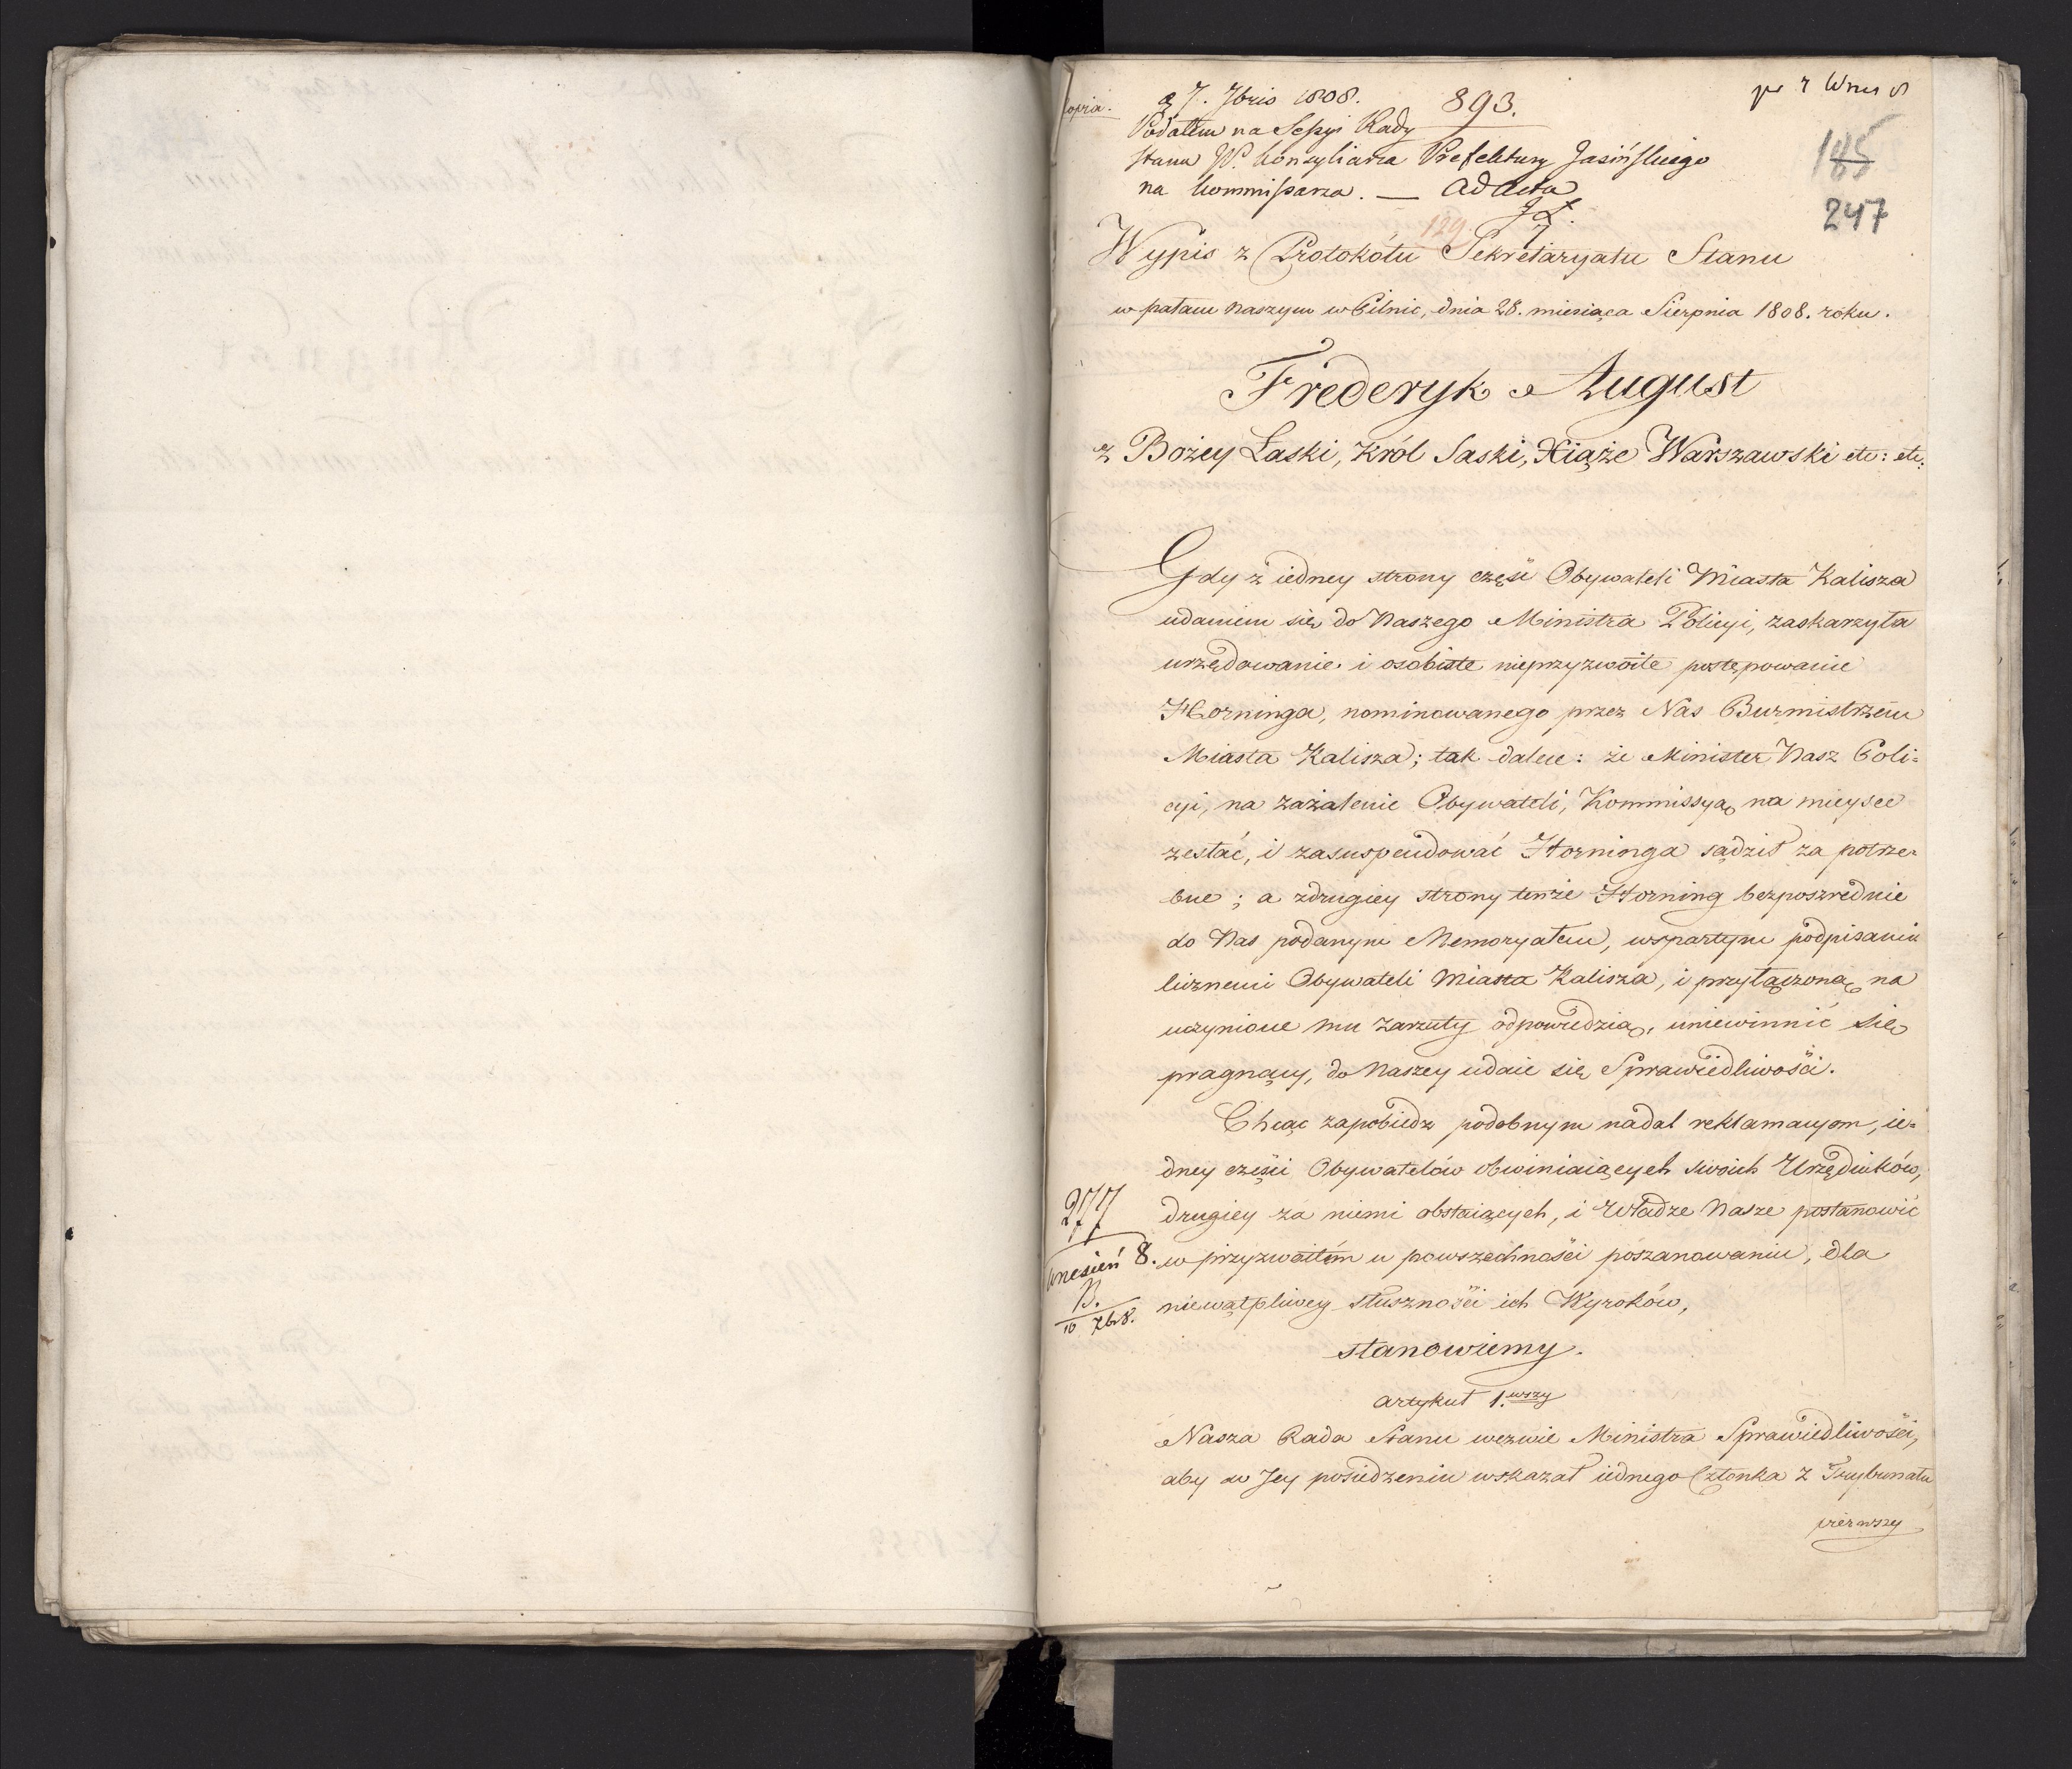 Kopia.
d 7. 7bris 1808.
893.
pr 7 Wrześ 8
Podałem na Sessyi Rady
Stanu JW. Konsyliarza Prefektury Jasińskiego
na Kommissarza. — ad acta
185
247
129
Wypis z Protokółu Sekretaryatu Stanu
w pałacu Naszym w Pilnic, dnia 28. miesiąca Sierpnia 1808. roku.
Frederyk August
z Bożey Łaski, Król Saski, Xiąże Warszawski etc: etc:
Gdy z iedney strony część Obywateli Miasta Kalisza
udaniem się do Naszego Ministra Policyi, zaskarzyła
urzędowanie i osobiste nieprzyzwoite postępowanie
Horninga, nominowanego przez Nas Burmistrzem
Miasta Kalisza; tak dalece: że Minister Nasz Poli=
cyi, na zażalenie Obywateli, Kommissyą na mieysce
zesłać, i zasuspendować Horninga sądził za potrze=
bne; a zdrugiey strony tenże Horning bezposzrednie
do Nas podanym Memoryałem, wspartym podpisaniu
licznemi Obywateli Miasta Kalisza, i przyłączoną na
uczynione mu zarzuty odpowiedzią, uniewinnić się
pragnący, do Naszey udaie się Sprawiedliwości.
Chcąc zapobiedz podobnym nadal reklamacyom, ie=
dney części Obywatelów obwiniaiących swoich Urzędników,
drugiey za niemi obstaiących, i Władze Nasze postanowić
w przyzwoitém u powszechności poszanowaniu, dla
niewątpliwey słuszności ich Wyroków,
277
Wnesień 8.
B.
10 7br 8.
stanowiemy.
Artykuł 1.wszy
Nasza Rada Stanu wezwie Ministra Sprawiedliwości,
aby na Jey posiedzeniu wskazał iednego Członka z Trybunału
pierwszy